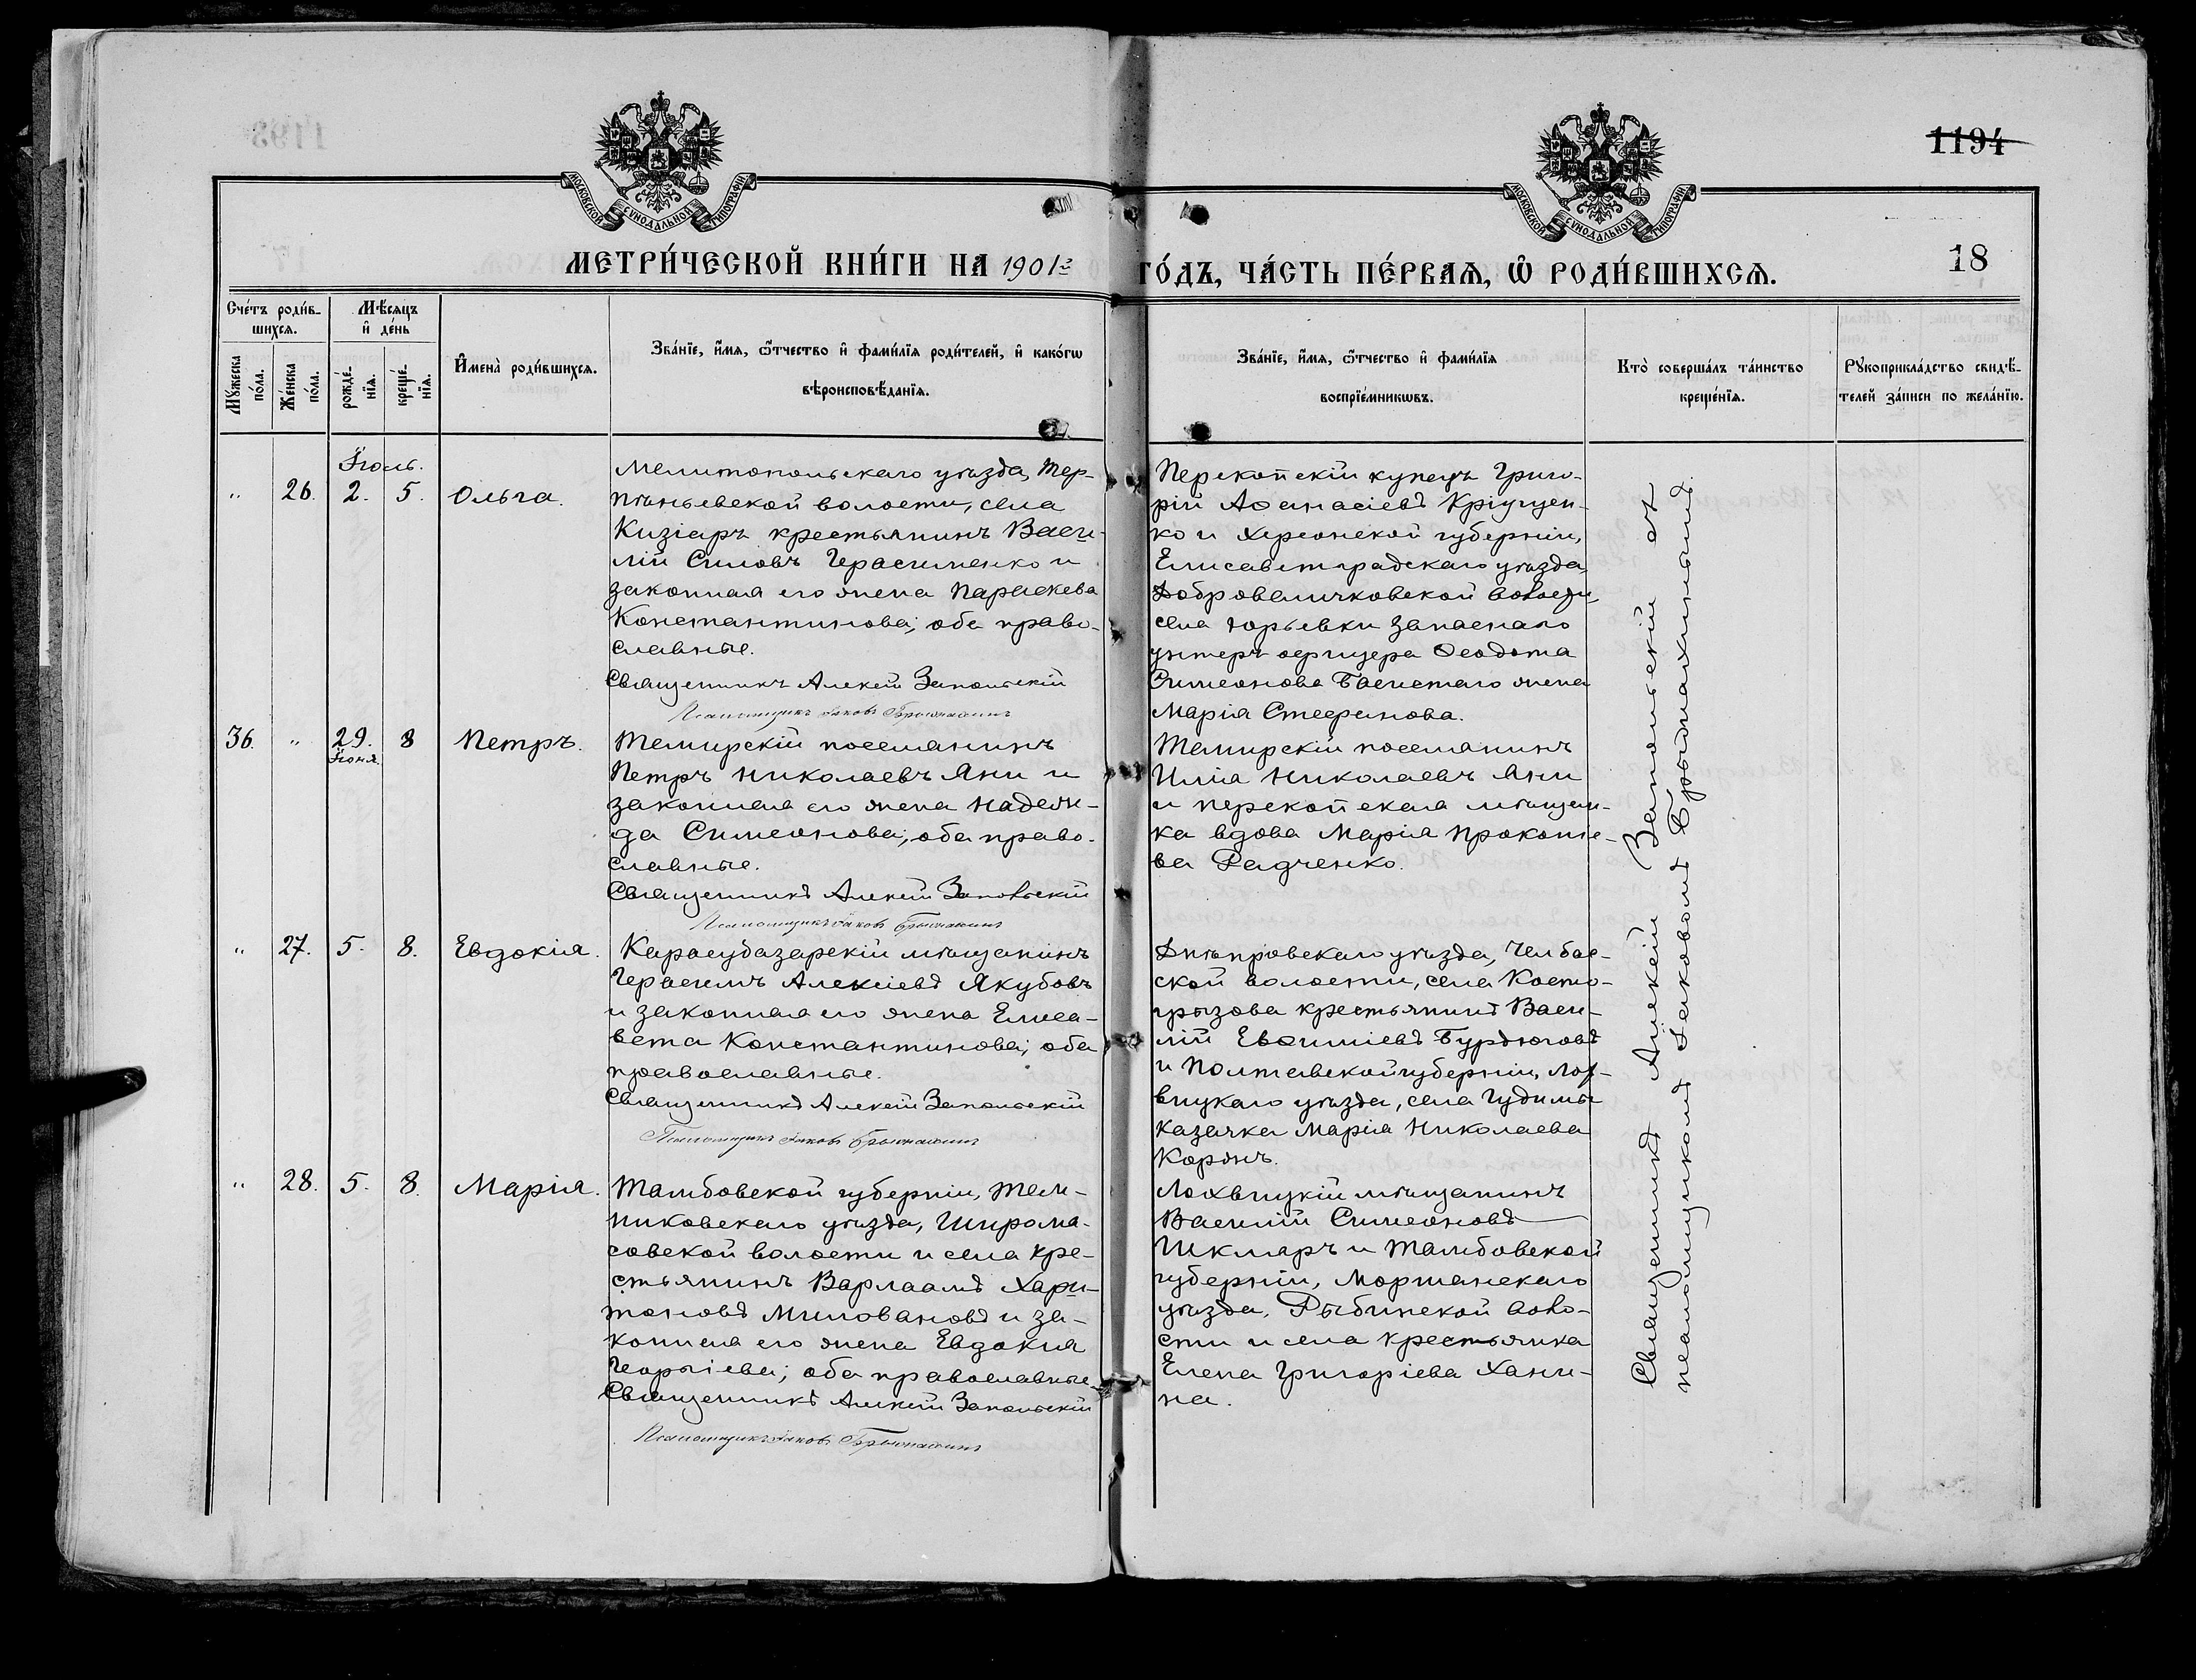 1194
МОСКОВСКОЙ СѴНОДАЛЬНОЙ ТИПОГРАФІИ
МОСКОВСКОЙ СѴНОДАЛЬНОЙ ТИПОГРАФІИ
МЕТРИ́ЧЕСКОЙ КНИ́ГИ НА 1901й
ГО́ДЪ, ЧА́СТЬ ПЕ́РВАѦ, Ѡ РОДИ́ВШИХСѦ.
18
Сче́тъ роди́в-
шихсѧ.
Мѣ́сѧцъ
и де́нь
Мꙋ́жеска
по́ла.
Же́нска
по́ла.
рожде́-
нїѧ.
креще́-
нїѧ.
Имена̀ роди́вшихсѧ.
Зва́нїе, и́мѧ, ѻ́тчество и фами́лїѧ роди́телей, и како́гѡ
вѣроисповѣ́данїѧ.
Зва́нїе, и́мѧ, ѻ́тчество и фами́лїѧ
воспрїе́мникѡвъ.
Кто̀ соверша́лъ та́инство
креще́нїѧ.
Рꙋкоприкла́дство свидѣ́-
телей за́писи по жела́нїю.
Іюль.
" 26. 2. 5. Ольга.
Мелитопольскаго уѣзда, Тер-
пѣньевской волости, села
Кизіаръ крестьянинъ Васи-
лій Силовъ Герасименко и
законная его жена Параскева
Константинова; оба право-
славные.
Священникъ Алексій Запольскій
Псаломщикъ Іаковъ
Перекопскій купецъ Григо-
рій Аѳанасіевъ Кріущен-
ко и Херсонской губерніи,
Елисаветградскаго уѣзда,
Добровеличковской волости,
села Юрьевки запаснаго
унтеръ офицера Ѳеодота
Симеонова Басистаго жена
Марія Стефанова.
36. " 29. 8 Петръ.
Іюня.
Темирскій поселянинъ
Петръ Николаевъ Яни и
законная его жена Надеж-
да Симеонова; оба право-
славные.
Священникъ Алексій Запольскій
Псаломщикъ Іаковъ
Темирскій поселянинъ
Илія Николаевъ Яни
и перекопская мѣщан-
ка вдова Марія Прокопіе-
ва Радченко.
" 27. 5. 8. Евдокія.
Карасубазарскій мѣщанинъ
Герасимъ Алексіевъ Якубовъ
и законная его жена Елиса-
вета Константинова; оба
православные.
Священникъ Алексій Запольскій
Псаломщикъ Іаковъ
Днѣпровскаго уѣзда, Челбас-
ской волости, села Косто-
грызова крестьянинъ Васи-
лій Евѳиміевъ Бурдюговъ
и Полтавской губерніи, Лох-
вицкаго уѣзда, села Гудимы
казачка Марія Николаева
Коржъ.
" 28. 5. 8. Марія.
Тамбовской губерніи, Тем-
никовскаго уѣзда, Широма-
совской волости и села кре-
стьянинъ Варлаамъ Хари-
тоновъ Миловановъ и за-
конная его жена Евдокія
Георгіева; оба православные.
Священникъ Алексій Запольскій
Псаломщикъ Іаковъ
Лохвицкій мѣщанинъ
Василій Симеоновъ
Шкляръ и Тамбовской
губерніи, Моршанскаго
уѣзда, Рыбинской воло-
сти и села крестьянка
Елена Григоріева Хани-
на.
Священникъ Алексій Запольскій съ
псаломщикомъ Іаковомъ